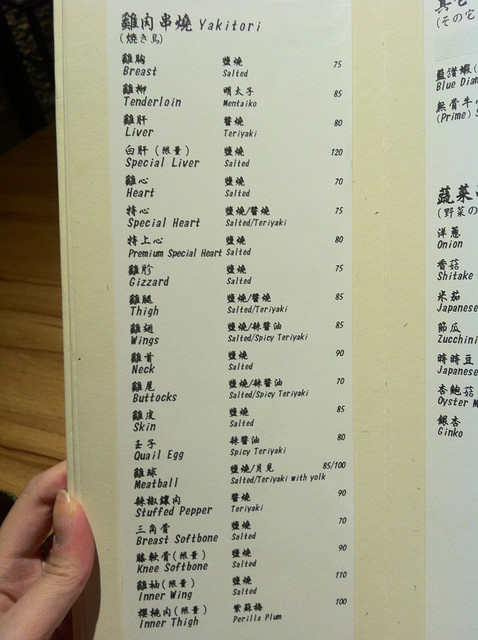 雞肉串燒 Yakitori
(焼き鳥)
雞胸 鹽燒 75
Breast Salted
雞柳 明太子 85
Tenderloin Mentaiko
雞肝 醬燒 80
Liver Teriyaki
白肝 (限量) 鹽燒 120
Special Liver Salted
雞心 鹽燒 70
Heart Salted
特心 鹽燒/醬燒 75
Special Heart Salted/Teriyaki
特上心 鹽燒 80
Premium Special Heart Salted
雞胗 鹽燒 75
Gizzard Salted
雞腿 鹽燒/醬燒 85
Thigh Salted/Teriyaki
雞翅 鹽燒/辣醬油 85
Wings Salted/Spicy Teriyaki
雞首 鹽燒 90
Neck Salted
雞尾 鹽燒/辣醬油 70
Buttocks Salted/Spicy Teriyaki
雞皮 鹽燒 85
Skin Salted
玉子 辣醬油 80
Quail Egg Spicy Teriyaki
雞球 鹽燒/月見 85/100
Meatball Salted/Teriyaki with yolk
辣椒鑲肉 醬燒 90
Stuffed Pepper Teriyaki
三角骨 鹽燒 70
Breast Softbone Salted
膝軟骨(限量) 鹽燒 90
Knee Softbone Salted
雞袖(限量) 鹽燒 110
Inner Wing Salted
櫻桃肉(限量) 紫蘇梅 100
Inner Thigh Perilla Plum
(その它
藍鑽蝦(
Blue Dia
無骨牛
(Prime) S
蔬菜
(野菜の
洋蔥
Onion
香菇
Shitake
米茄
Japanese
節瓜
Zucchini
時時豆
Japanese
杏鮑菇
Oyster M
銀杏
Ginko